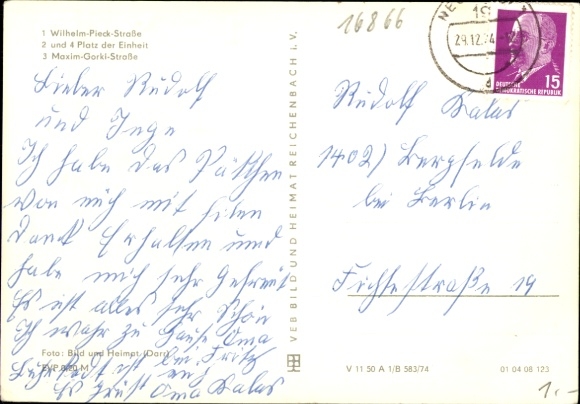 1 Wilhelm-Pieck-Straße
2 und 4 Platz der Einheit
3 Maxim-Gorki-Straße
Lieber Rudolf
und Inge
Ich habe das Pätchen
von mich mit
dank Erhalten und
habe mich sehr Gefreut
Es ist alles sehr Schön
Ich wahr zu Hause Oma
ist bei Fritz
Es Grüst Oma Kalas
Foto: Bild und Heimat (Darr)
EVP 0,20 M
VEB BILD UND HEIMAT REICHENBACH I. V.
16866
29.12.74
DEUTSCHE
DEMOKRATISCHE REPUBLIK
15
Rudolf Kalas
1402) Bergfelde
bei Berlin
Fichtestraße 19
V 11 50 A 1/B 583/74
01 04 08 123
1.-